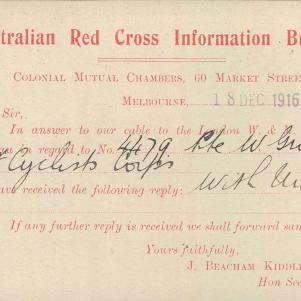 tralian Red Cross Information B
Colonial Mutual Chambers, 60 Market Stree
Melbourne, 18 DEC 1916
Sir,
In answer to our cable to the London W. &
in regard to No. 4479 Pte W.
Cyclists Corps
ave received the following reply: With
If any further reply is received we shall forward sam
Yours faithfully,
J. Beacham Kiddl
Hon Sec